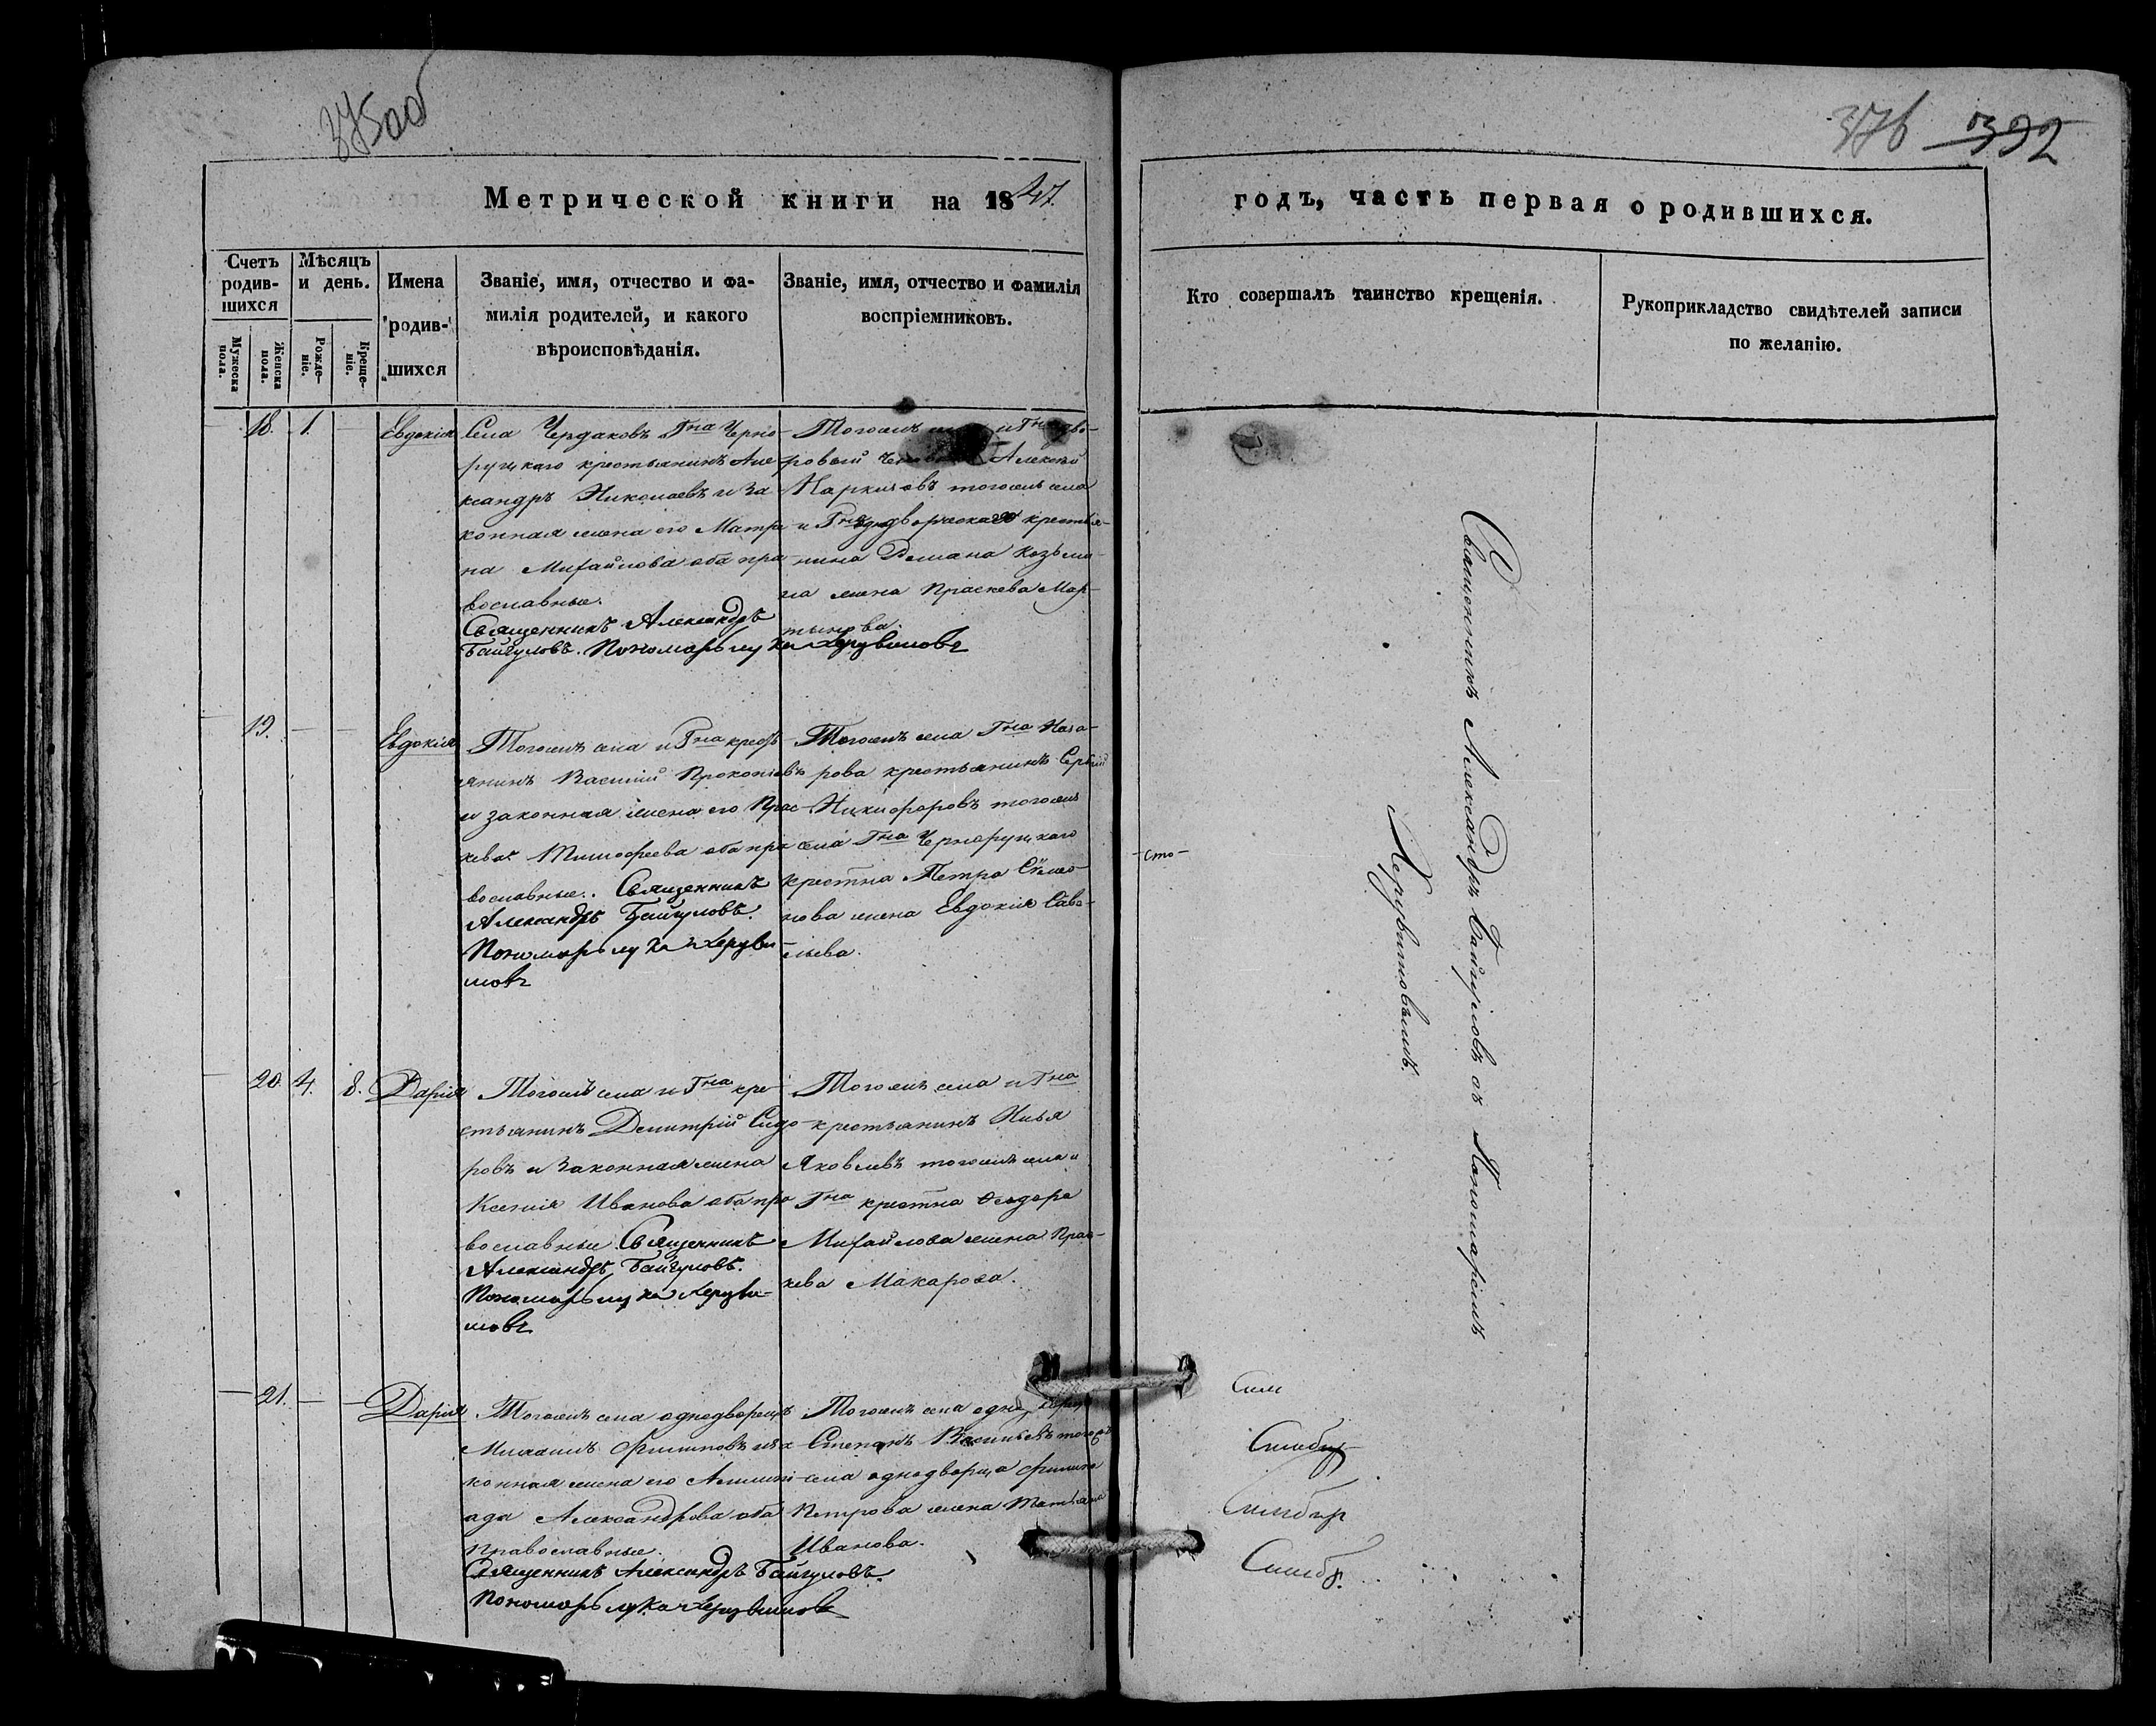 375об
376 392
Метрической книги на 1847.
годъ, часть первая о родившихся.
Счетъ родив-шихся
Мужеска пола.
Женска пола.
Мѣсяцъ и день.
Рожде-ніе.
Креще-ніе.
Имена
родив-
шихся
Званіе, имя, отчество и фа-
милія родителей, и какого
вѣроисповѣданія.
Званіе, имя, отчество и фамилія
воспріемниковъ.
Кто совершалъ таинство крещенія.
Рукоприкладство свидѣтелей записи
по желанію.
18. 1. Евдокія
Села Чердаковъ Гна Черно-
руцкаго крестьянинъ Але
ксандръ Николаевъ и За
конная жена его Матре
на Михайлова оба пра
вославные.
Священникъ Александръ
Байгуловъ. Пономарь Лука Херувимовъ
Тогожъ
ровый Алексей
тогожъ села
крестья-
нина Романа Козьми-
на жена Праскева Мар-
тынова.
19. Евдокія
Тогожъ села и Гна кресть
янинъ Василий Прокопіевъ
и законная жена его Прас
кева Тимофеева оба пра
вославные. Священникъ
Александръ Байгуловъ.
Пономарь Лука Херуви
мовъ
Тогожъ села Гна Наза-
рова крестьянинъ Сергій
Никифоровъ тогожъ
села Гна Чернаруцкаго
крестна Петра Симо-
нова жена Евдокія Саве-
льева.
20. 4. 8. Дарія
Тогожъ села и Гна кре
стьянинъ Димитрій Сидо
ровъ и Законная жена
Ксенія Иванова оба пра
вославные Священникъ
Александръ Байгуловъ.
Пономарь Лука Херуви-
мовъ
Тогожъ села и Гна
крестьянинъ Илья
Яковлевъ тогожъ села и
Гна крестна Феодора
Михайлова жена Прас-
кева Макарова.
21. Дарія
Тогожъ села однодворецъ
Михаилъ Филиповъ и за
конная жена его
Александрова оба
православные.
Священникъ Александръ Байгуловъ.
Пономарь Лука Херувимовъ
Тогожъ села однодворецъ
Степанъ Васильевъ тогожъ
села однодворца Филипа
Петрова жена Татьяна
Иванова.
Священникъ Александръ Байгуловъ съ Пономаремъ
Херувимовымъ.
сто
Сим
Симбир
Симбир
Симб.